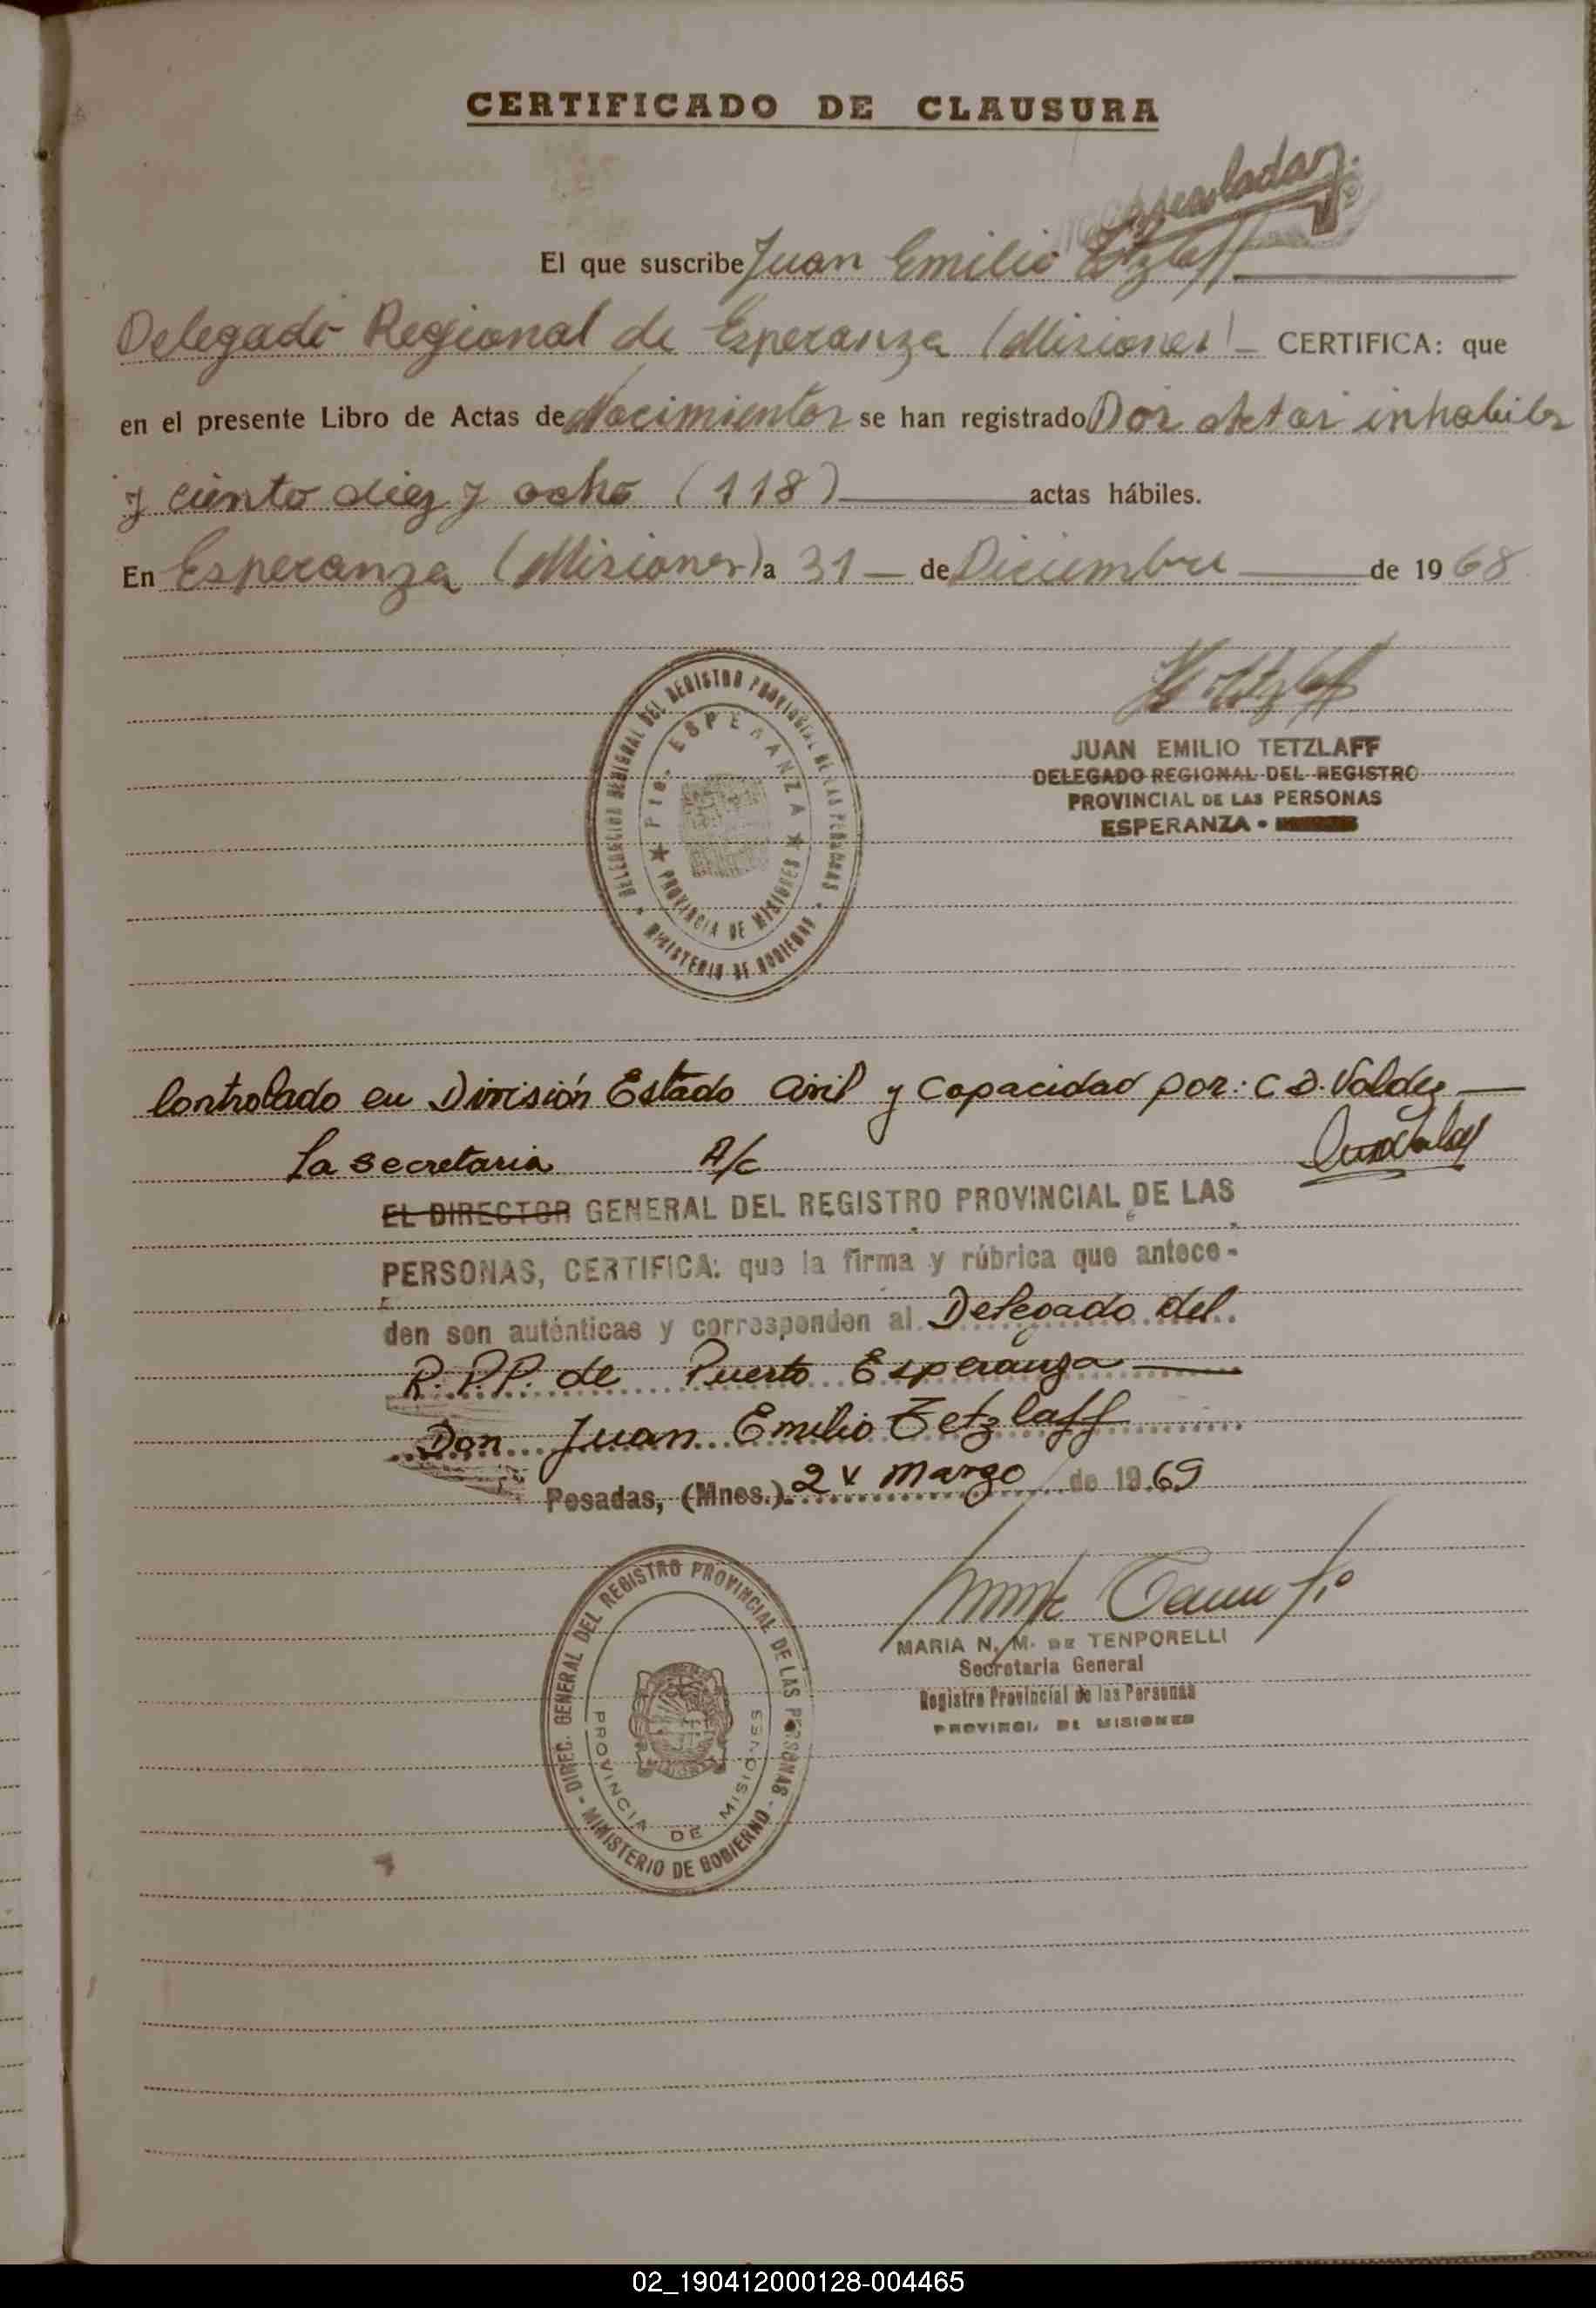 CERTIFICADO DE CLAUSURA
El que suscribe Juan Emilio Tetzlaff
Delegado Regional de Esperanza (Misiones) - CERTIFICA: que
en el presente Libro de Actas de Nacimientos se han registrado Dos Actas inhabiles
y ciento diez y ocho (118) actas hábiles.
En Esperanza (Misiones) a 31 - de Diciembre de 1968
DELEGACION REGIONAL DEL REGISTRO PROVINCIAL DE LAS PERSONAS
Pto. ESPERANZA
PROVINCIA DE MISIONES
MINISTERIO DE GOBIERNO
JUAN EMILIO TETZLAFF
DELEGADO REGIONAL DEL REGISTRO
PROVINCIAL DE LAS PERSONAS
ESPERANZA •
Controlado en División Estado Civil y Capacidad por: C D. Valdez
La secretaria A/c
EL DIRECTOR GENERAL DEL REGISTRO PROVINCIAL DE LAS
PERSONAS, CERTIFICA: que la firma y rúbrica que antece-
den son auténticas y corresponden al Delegado del
R.P.P. de Puerto Esperanza
Don Juan Emilio Tetzlaff
Posadas, (Mnes.) 2 v marzo de 1969
DIREC. GENERAL DEL REGISTRO PROVINCIAL DE LAS PERSONAS - MINISTERIO DE GOBIERNO -
PROVINCIA DE MISIONES
MARIA N. M. DE TENPORELLI
Secretaria General
Registro Provincial de las Personas
PROVINCIA DE MISIONES
02_190412000128-004465